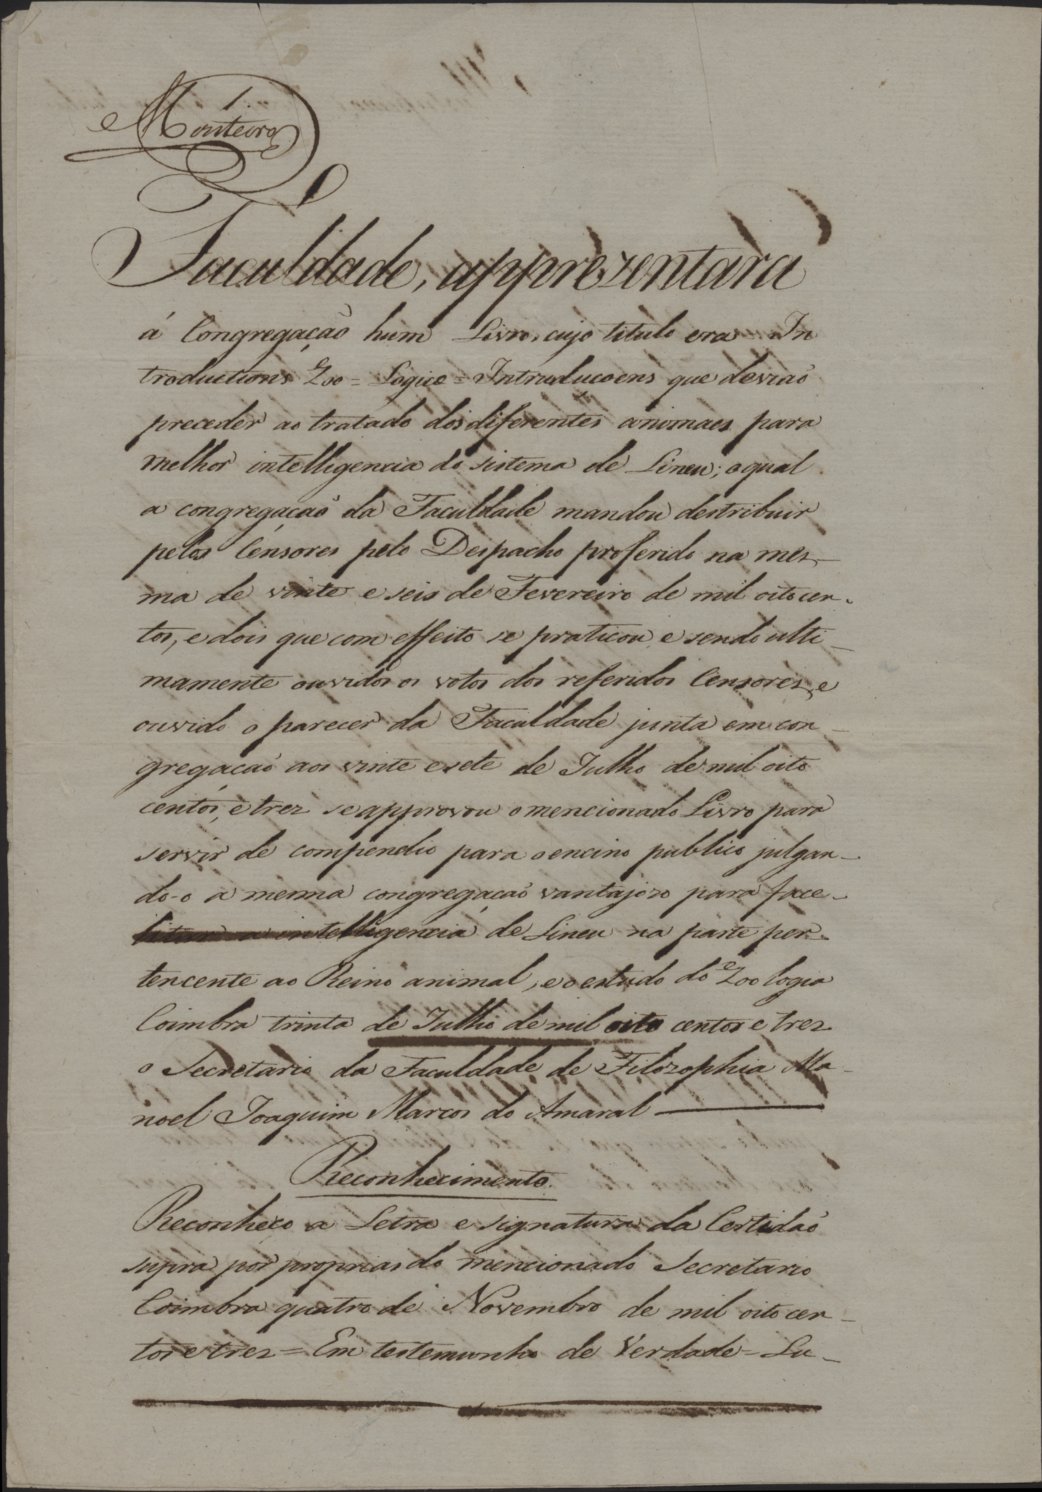 1.
Monteiro
Faculdade, appresentara
á Congregação hum Livro, cujo titulo era In
troductions Zoo = Logice = Introduçoens que deviaõ
preceder ao tratado dos diferentes animaes para
melhor intelligencia do sistema de Lineu; o qual
a congregaçaõ da Faculdade mandou destribuir
pelos Censores pelo Despacho proferido na mes-
ma de vinte e seis de Fevereiro de mil oito cen-
tos, e dois que com effeito se praticou, e sendo ulti-
mamente ouvidos os votos dos referidos Censores, e
ouvido o parecer da Faculdade junta em con-
gregaçaõ aos vinte e sete de Julho de mil oito
centos, e trez se approvou o mencionado Livro para
servir de compendio para o encino publico julgan-
do-o a mesma congregaçaõ vantajozo para face-
litar a intelligencia de Lineu na parte per-
tencente ao Reino animal, e o estudo do Zoologia
Coimbra trinta de Julho de mil oito centos e trez
o Secretario da Faculdade de Filozophia Ma-
noel Joaquim Marcos do Amaral
Reconhecimento
Reconheço a Letra e signatura da Certidaõ
supra por proprias do mencionado Secretario
Coimbra quatro de Novembro de mil oito cen-
tos e trez = Em testemunho de Verdade = Lu-